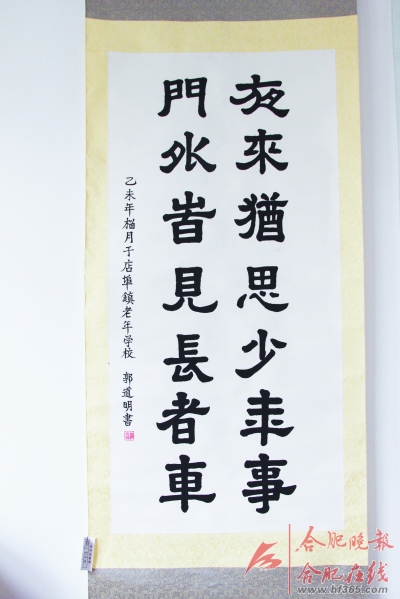 夜來猶思少年事
門外皆見長者車
乙未年榴月于店埠鎮老年学校 郭道明書
合肥晚报
合肥在线
http://www.hf365.com